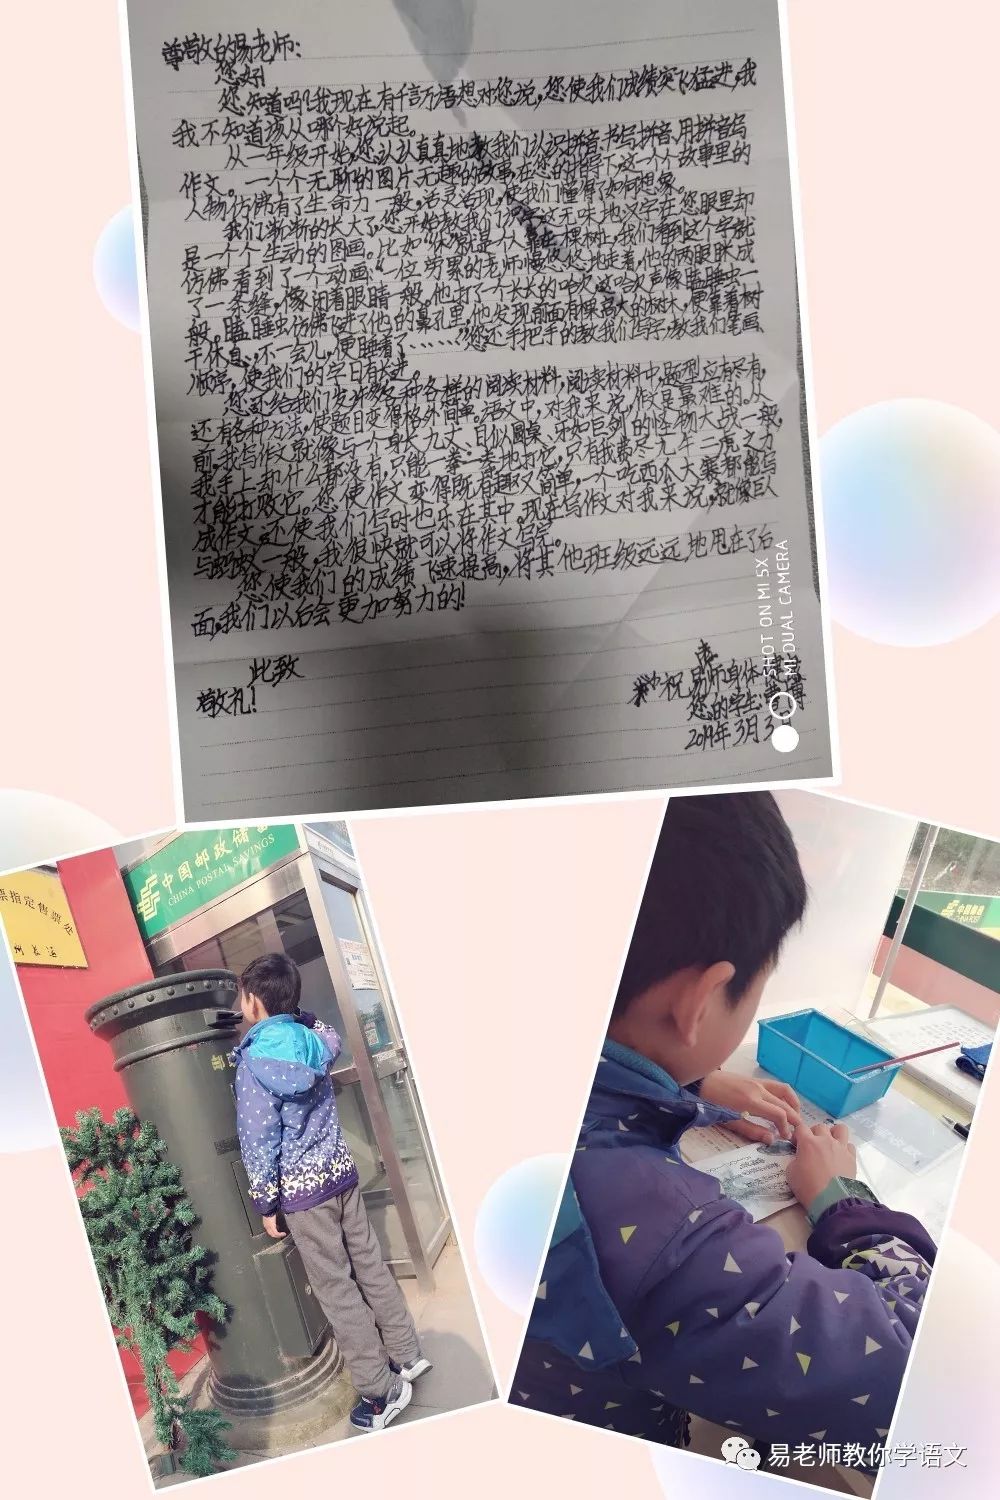 尊敬的易老师：
您好！
您知道吗？我现在有千言万语想对您说，您使我们成绩突飞猛进，我
我不知道该从哪个好说起。
从一年级开始，您认认真真地教我们认识拼音、书写拼音、用拼音写
作文。一个个无聊的图片、无趣的故事，在您的指导下这一个个故事里的
人物仿佛有了生命力一般，活灵活现，使我们懂得了如何想象。
我们渐渐的长大了，您开始教我们汉字，无味地汉字在您眼里却
是一个个生动的图画。比如“休”就是个人靠在一棵树上，我们看到这个字就
仿佛看到了一个动画：“一位劳累的老师慢悠悠地走着，他的两眼眯成
了一条缝，像闭着眼睛一般。他打了一个长长的哈欠，这哈欠声像瞌睡虫一
般。瞌睡虫仿佛飞进了他的鼻孔里，他发现前面有棵高大的树木，便靠着树
干休息，不一会儿，便睡着了……”您还手把手的教我们写字，教我们笔画
顺序，使我们的字日有长进。
您还给我们各种各样的阅读材料，阅读材料中，题型应有尽有，
还有各种方法，使题目变得格外简单。语文中，对我来说，作文是最难的。从
前，我与作文就像与一个身长九丈、目似圆桌、牙如巨列的怪物大战一般，
我手上却什么都没有，只能一拳一拳地打它，只有我费尽九牛二虎之力
才能打败它。您使作文变得既有趣又简单，一个吃西瓜大赛都能写
成作文，还使我们写时也乐在其中。现在写作文对我来说，就像巨人
与蚂蚁一般，我很快就可以将作文写完。
您使我们的成绩飞速提高，将其他班级远远地甩在了后
面，我们以后会更加努力的！
此致
敬礼！
祝易老师身体
您的学生：
2019年3月3
SHOT ON MI 5X
MI DUAL CAMERA
票指定售票处
州长运
中国邮政储
CHINA POSTAL SAVINGS
中国邮政
CHINA POST
易老师教你学语文